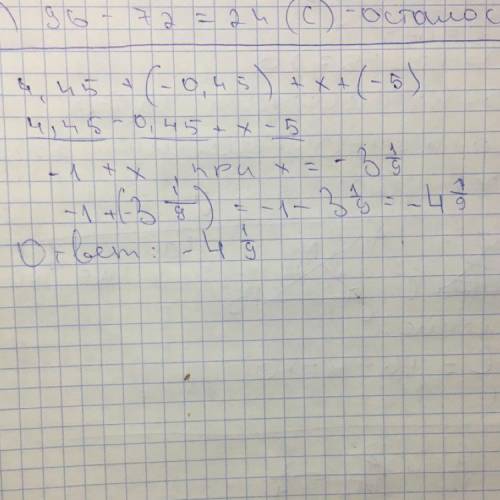 ) 96 - 72 = 24 (с) - осталос
4,45 + (-0,45) + x + (-5)
4,45 - 0,45 + x - 5
-1 + x при x = -3 1/9
-1 + (-3 1/9) = -1 - 3 1/9 = -4 1/9
Ответ: -4 1/9